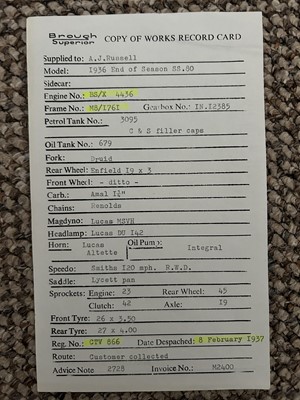 Brough Superior COPY OF WORKS RECORD CARD
Supplied to: A.J.Russell
Model: I936 End of Season SS.80
Sidecar:
Engine No.: BS/X 4436
Frame No.: M8/I76I Gearbox No.: IN.I2385
Petrol Tank No.: 3095
C & S filler caps
Oil Tank No.: 679
Fork: Druid
Rear Wheel: Enfield I9 x 3
Front Wheel: - ditto -
Carb.: Amal I⅛"
Chains: Renolds
Magdyno: Lucas MSVH
Headlamp: Lucas DU I42
Horn: Lucas Altette Oil Pump: Integral
Speedo: Smiths I20 mph. R.W.D.
Saddle: Lycett pan
Sprockets: Engine: 23 Rear Wheel: 45
Clutch: 42 Axle: I9
Front Tyre: 26 x 3.50
Rear Tyre: 27 x 4.00
Reg. No.: GTV 866 Date Despached: 8 February I937
Route: Customer collected
Advice Note 2728 Invoice No.: M2400